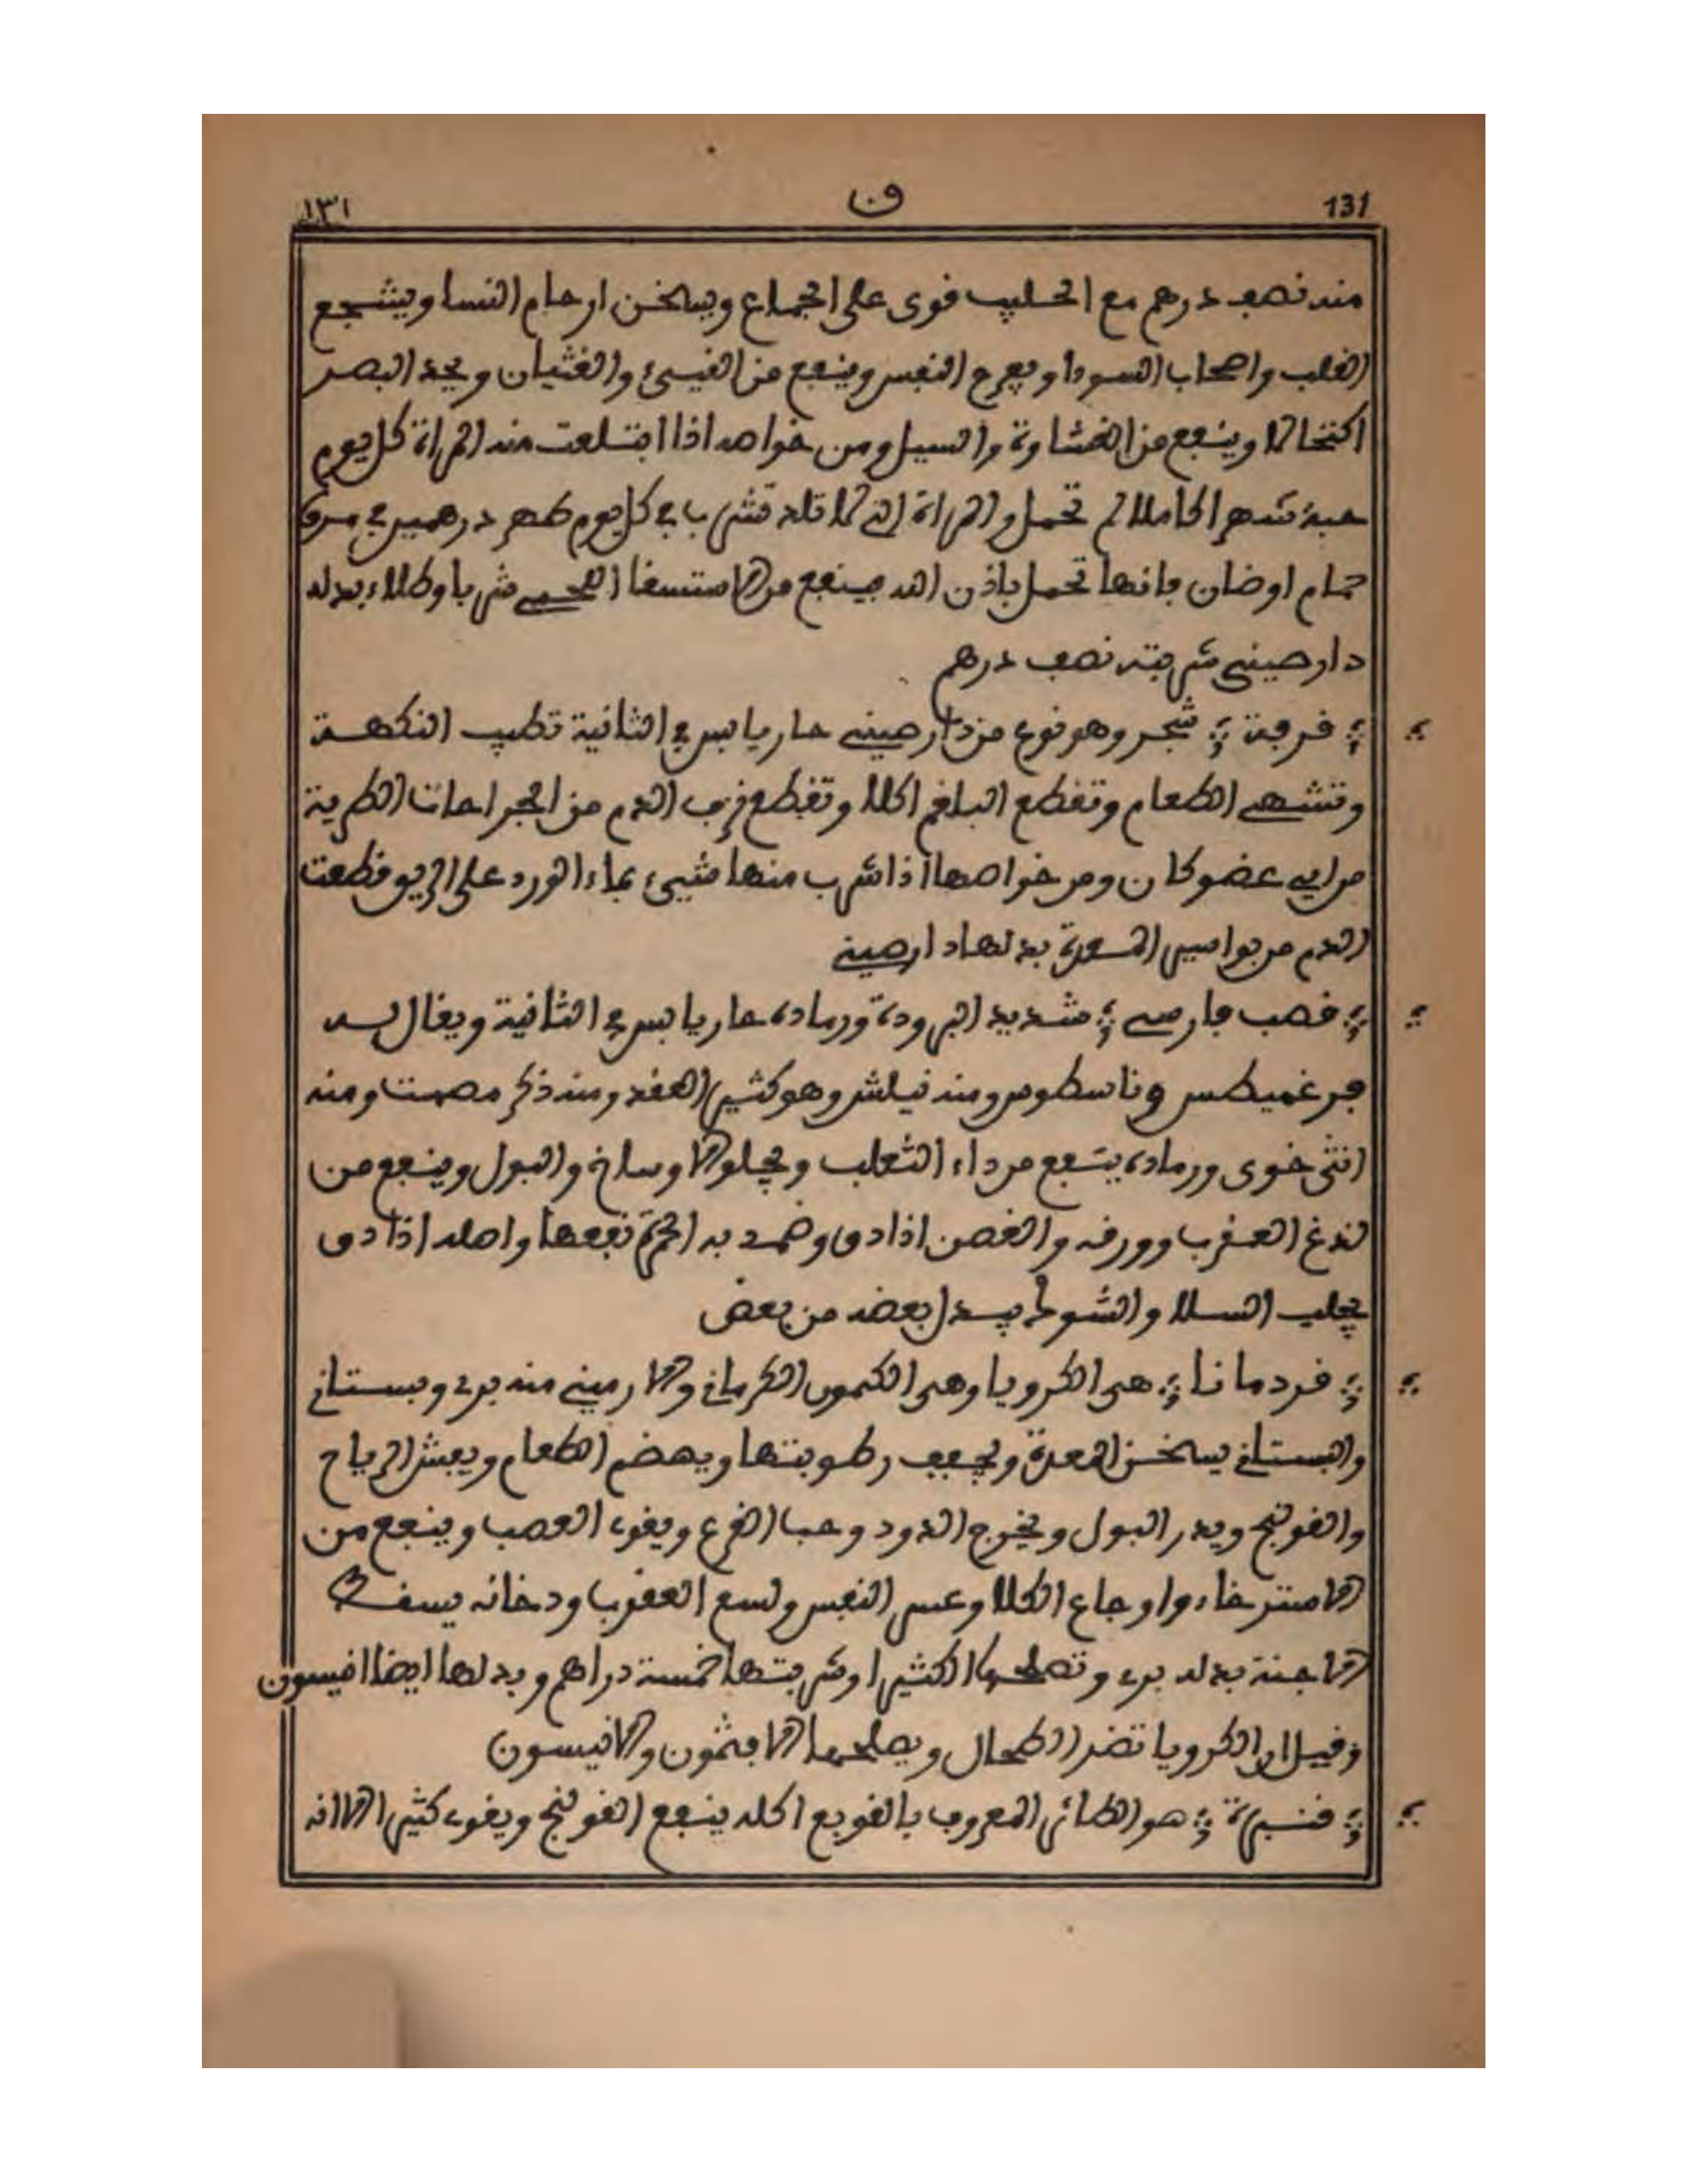 ١٣١ ق 131
منه نصف درهم مع الحليب قوى على الجماع ويسخن ارحام النسا ويشجع
القلب واصحاب السودا ويفرح النفس وينفع من القيىء والغثيان ويحد البصر
اكتحالا وينفع من الغشاوة والسيل ومن خواصه اذا ابتلعت منه المراة كل يوم
حبة شهرا كاملا لم تحمل والمراة التى لا تلد تشرب فى كل يوم طهر درهمين فى مرق
حمام اوضان فانها تحمل باذن الله وينفع من الاستسقا اللحمى شربا وطلاء بدله
دارصينى شربته نصف درهم
قرفة شجر وهو نوع من دارصينى حار يابس فى الثانية تطيب النكهة
وتشهى الطعام وتقطع البلغم اكلا وتقطع نزف الدم من الجراحات الطرية
من اى عضو كان ومن خواصها اذا شرب منها شيىء بماء الورد على الريق قطعت
الدم من بواسير المعدة بدلها دارصينى
قصب فارسى شديد البرودة ورماده حار يابس فى الثانية ويقال له
فرغميطس وناسطوس ومنه نيلش وهو كثير العقد ومنه ذكر مصمت ومنه
انثى خوى ورماده ينفع من داء الثعلب ويجلو الاوساخ والبول وينفع من
لدغ العقرب وورقه والغصن اذا دق وضمد به الحمرة نفعها واصله اذا دق
يجلب السلا والشوك يبدل بعضه من بعض
قردمانا هى الكرويا وهى الكمون الكرمانى والارمينى منه برى وبستانى
والبستانى يسخن المعدة ويجفف رطوبتها ويهضم الطعام ويفش الرياح
والقولنج ويدر البول ويخرج الدود وحب القرع ويقوى العصب وينفع من
الاسترخاء واوجاع الكلا وعسر النفس ولسع العقرب ودخانه يسقط
الاجنة بدله برى وتصلحها الكثيرا وشربتها خمسة دراهم وبدلها ايضا انيسون
وقيل ان الكرويا تضر الطحال ويصلحها الافثمون والانيسون
قنبرة هو الطائر المعروف بالقوبع اكله ينفع القولنج ويقوى كثيرا الا انه